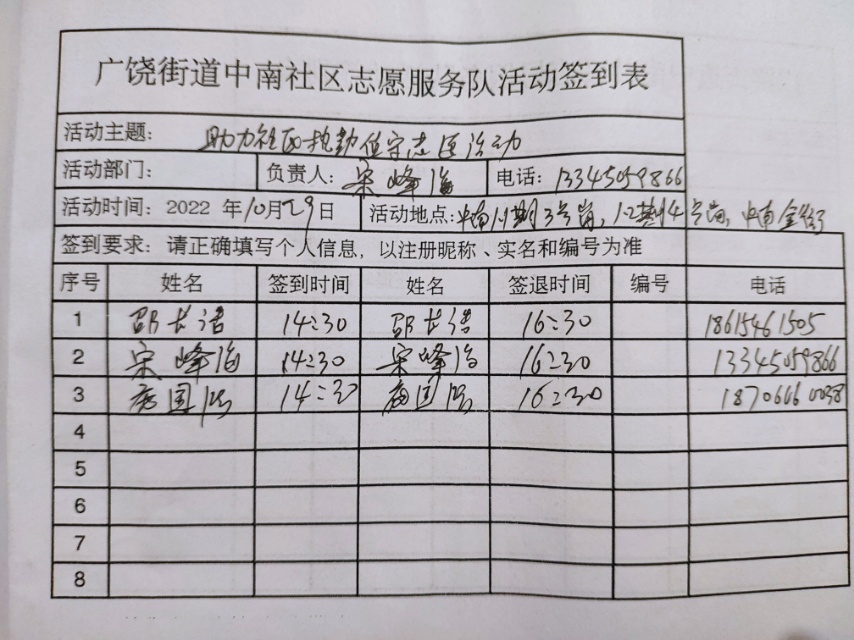 广饶街道中南社区志愿服务队活动签到表
活动主题： 助力社区执勤值守志愿活动
活动部门： 负责人：宋峰海 电话：13345059866
活动时间：2022 年10月29日 活动地点：中南1期3号岗，1.2期4号岗，中南金街
签到要求：请正确填写个人信息，以注册昵称、实名和编号为准
序号 姓名 签到时间 姓名 签退时间 编号 电话
1 邵长浩 14:30 邵长浩 16:30 18615461505
2 宋峰海 14:30 宋峰海 16:30 13345059866
3 国 14:30 国 16:30 1870666
4
5
6
7
8